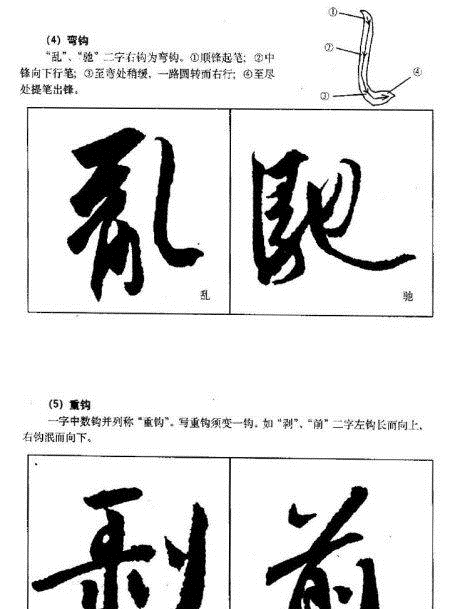 (4) 弯钩
“乱”、“驰”二字右钩为弯钩。①顺锋起笔；②中
锋向下行笔；③至弯处稍缓，一路圆转而右行；④至尽
处提笔出锋。
①
②
③
④
亂
馳
乱
驰
(5) 重钩
一字中数钩并列称“重钩”。写重钩须变一钩。如“剥”、“前”二字左钩长而向上，
右钩泯而向下。
剥
前